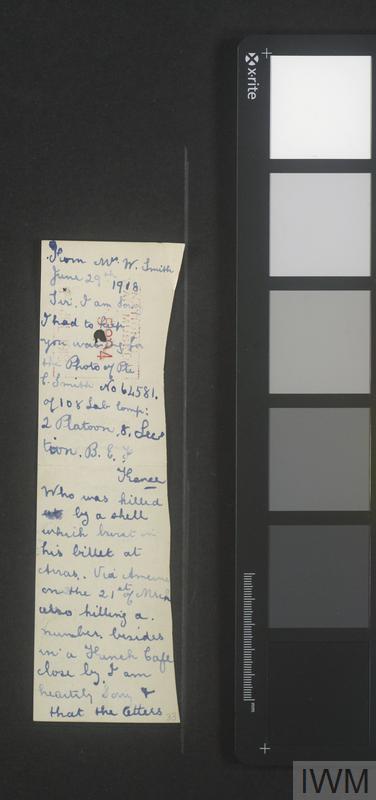 From Mrs. W. Smith
June 29th 1918
Sir. I am Sorry
I had to keep
you waiting for
the Photo of Pte
Smith No 64581.
of 108 Lab Comp:
2 Platoon. 8. Sec
tion. B. E. F
France
Who was killed
by a shell
which burst in
his billet at
Arras. Via Amiens
on the 21st of Mrch
also killing a
number besides
in a French Cafe
close by. I am
heartily Sorry &
that the letters
33
x-rite
mm
IWM